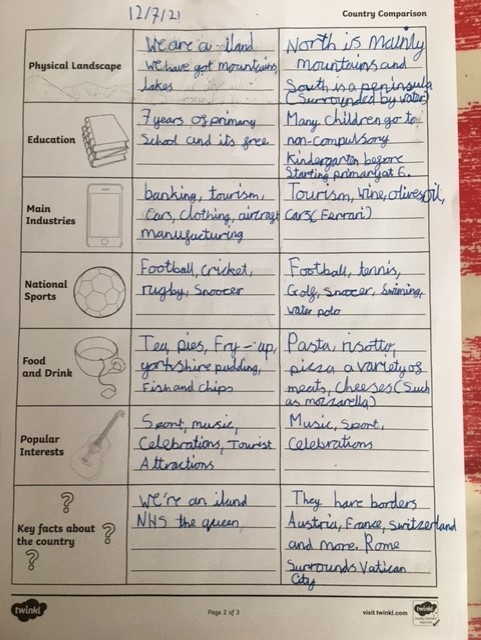 12/7/21
Country Comparison
Physical Landscape
We are a iland
we have got mountains,
lakes
North is mainly
mountains and
South is a peninsula
(Surrounded by water)
Education
7 years of primary
School and its free
Many children go to
non-compulsory
Kindergarten before
Starting primary at 6.
Main
Industries
banking, tourism,
Cars, clothing, aircraft
manufacturing
Tourism, wine, olives, oil,
Cars (Ferrari)
National
Sports
Football, cricket,
rugby, Snoocer
Football, tennis,
Golf, Snoocer, Swiming,
water polo
Food
and Drink
Tea, pies, Fry-up,
yorkshire pudding,
Fish and chips
Pasta, risotto,
pizza a variety of
meats, cheeses (Such
as mozzarella)
Popular
Interests
Sport, music,
Celebrations, Tourist
Attractions
Music, Sport,
Celebrations
Key facts about
the country
We're an iland
NHS the queen
They have borders
Austria, France, Switzerland
and more. Rome
Surrounds Vatican
City
twinkl
Page 2 of 3
visit twinkl.com
twinkl